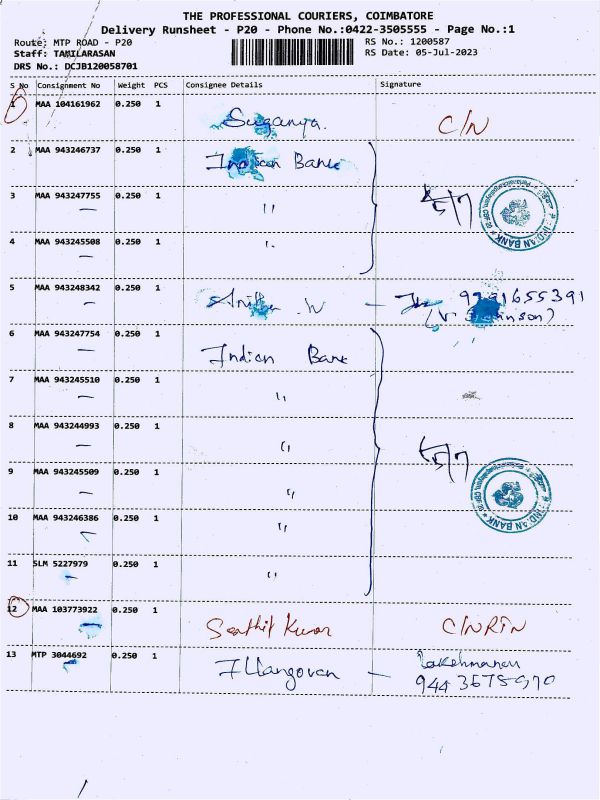 THE PROFESSIONAL COURIERS, COIMBATORE
Delivery Runsheet - P20 - Phone No.:0422-3505555 - Page No.:1
Route: MTP ROAD - P20 RS No.: 1200587
Staff: TAMILARASAN RS Date: 05-Jul-2023
DRS No.: DCJB120058701
S No Consignment No Weight PCS Consignee Details Signature
1 MAA 104161962 0.250 1 Suganya. C/N
2 MAA 943246737 0.250 1 Indian Bank
3 MAA 943247755 0.250 1 " 5/7
INDIAN BANK
4 MAA 943245508 0.250 1 "
5 MAA 948248342 0.250 1 Anitha .W
(V. Johnson)
6 MAA 943247754 0.250 1 Indian Bank
7 MAA 943245510 0.250 1 "
8 MAA 943244993 0.250 1 " 5/7
9 MAA 943245509 0.250 1 "
INDIAN BANK
10 MAA 943246386 0.250 1 "
11 SLM 5227979 0.250 1 "
12 MAA 103773922 0.250 1 Senthil Kumar C/NRTN
13 MTP 3044692 0.250 1 Illangovan - Lakshmanan